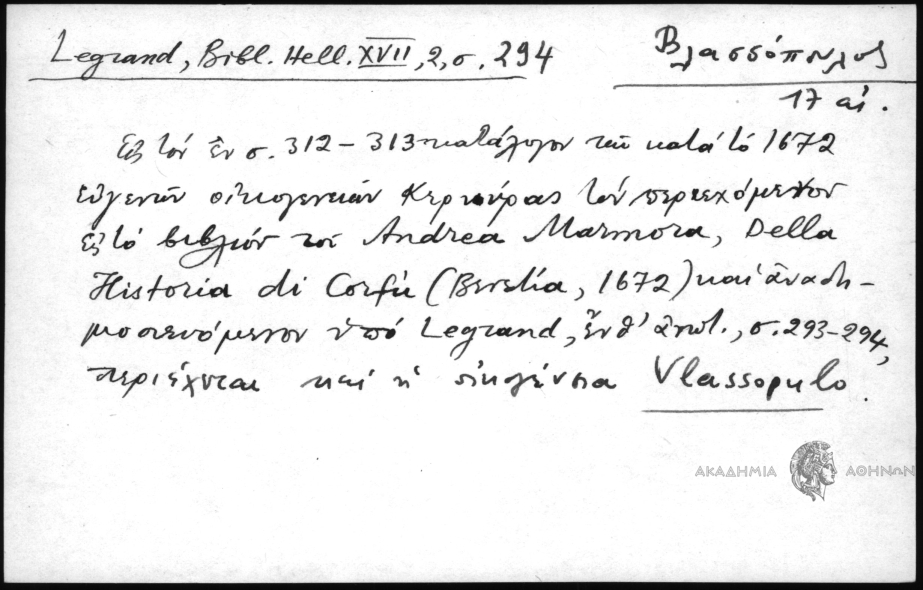 Legrand, Bibl. Hell. XVII, 2, σ. 294
Βλασσόπουλος
17 αἰ.
Εἰς τόν ἐν σ. 312 - 313 κατάλογον τῶν κατά τό 1672
εὐγενῶν οἰκογενειῶν Κερκύρας τόν περιεχόμενον
εἰς τό βιβλίον τοῦ Andrea Marmora, Della
Historia di Corfú (Βενετία, 1672) καί ἀναδη-
μοσιευόμενον ὑπό Legrand, ἔνθ' ἀνωτ., σ. 293-294,
περιέχεται καί ἡ οἰκογένεια Vlassopulo.
ΑΚΑΔΗΜΙΑ ΑΘΗΝΩΝ